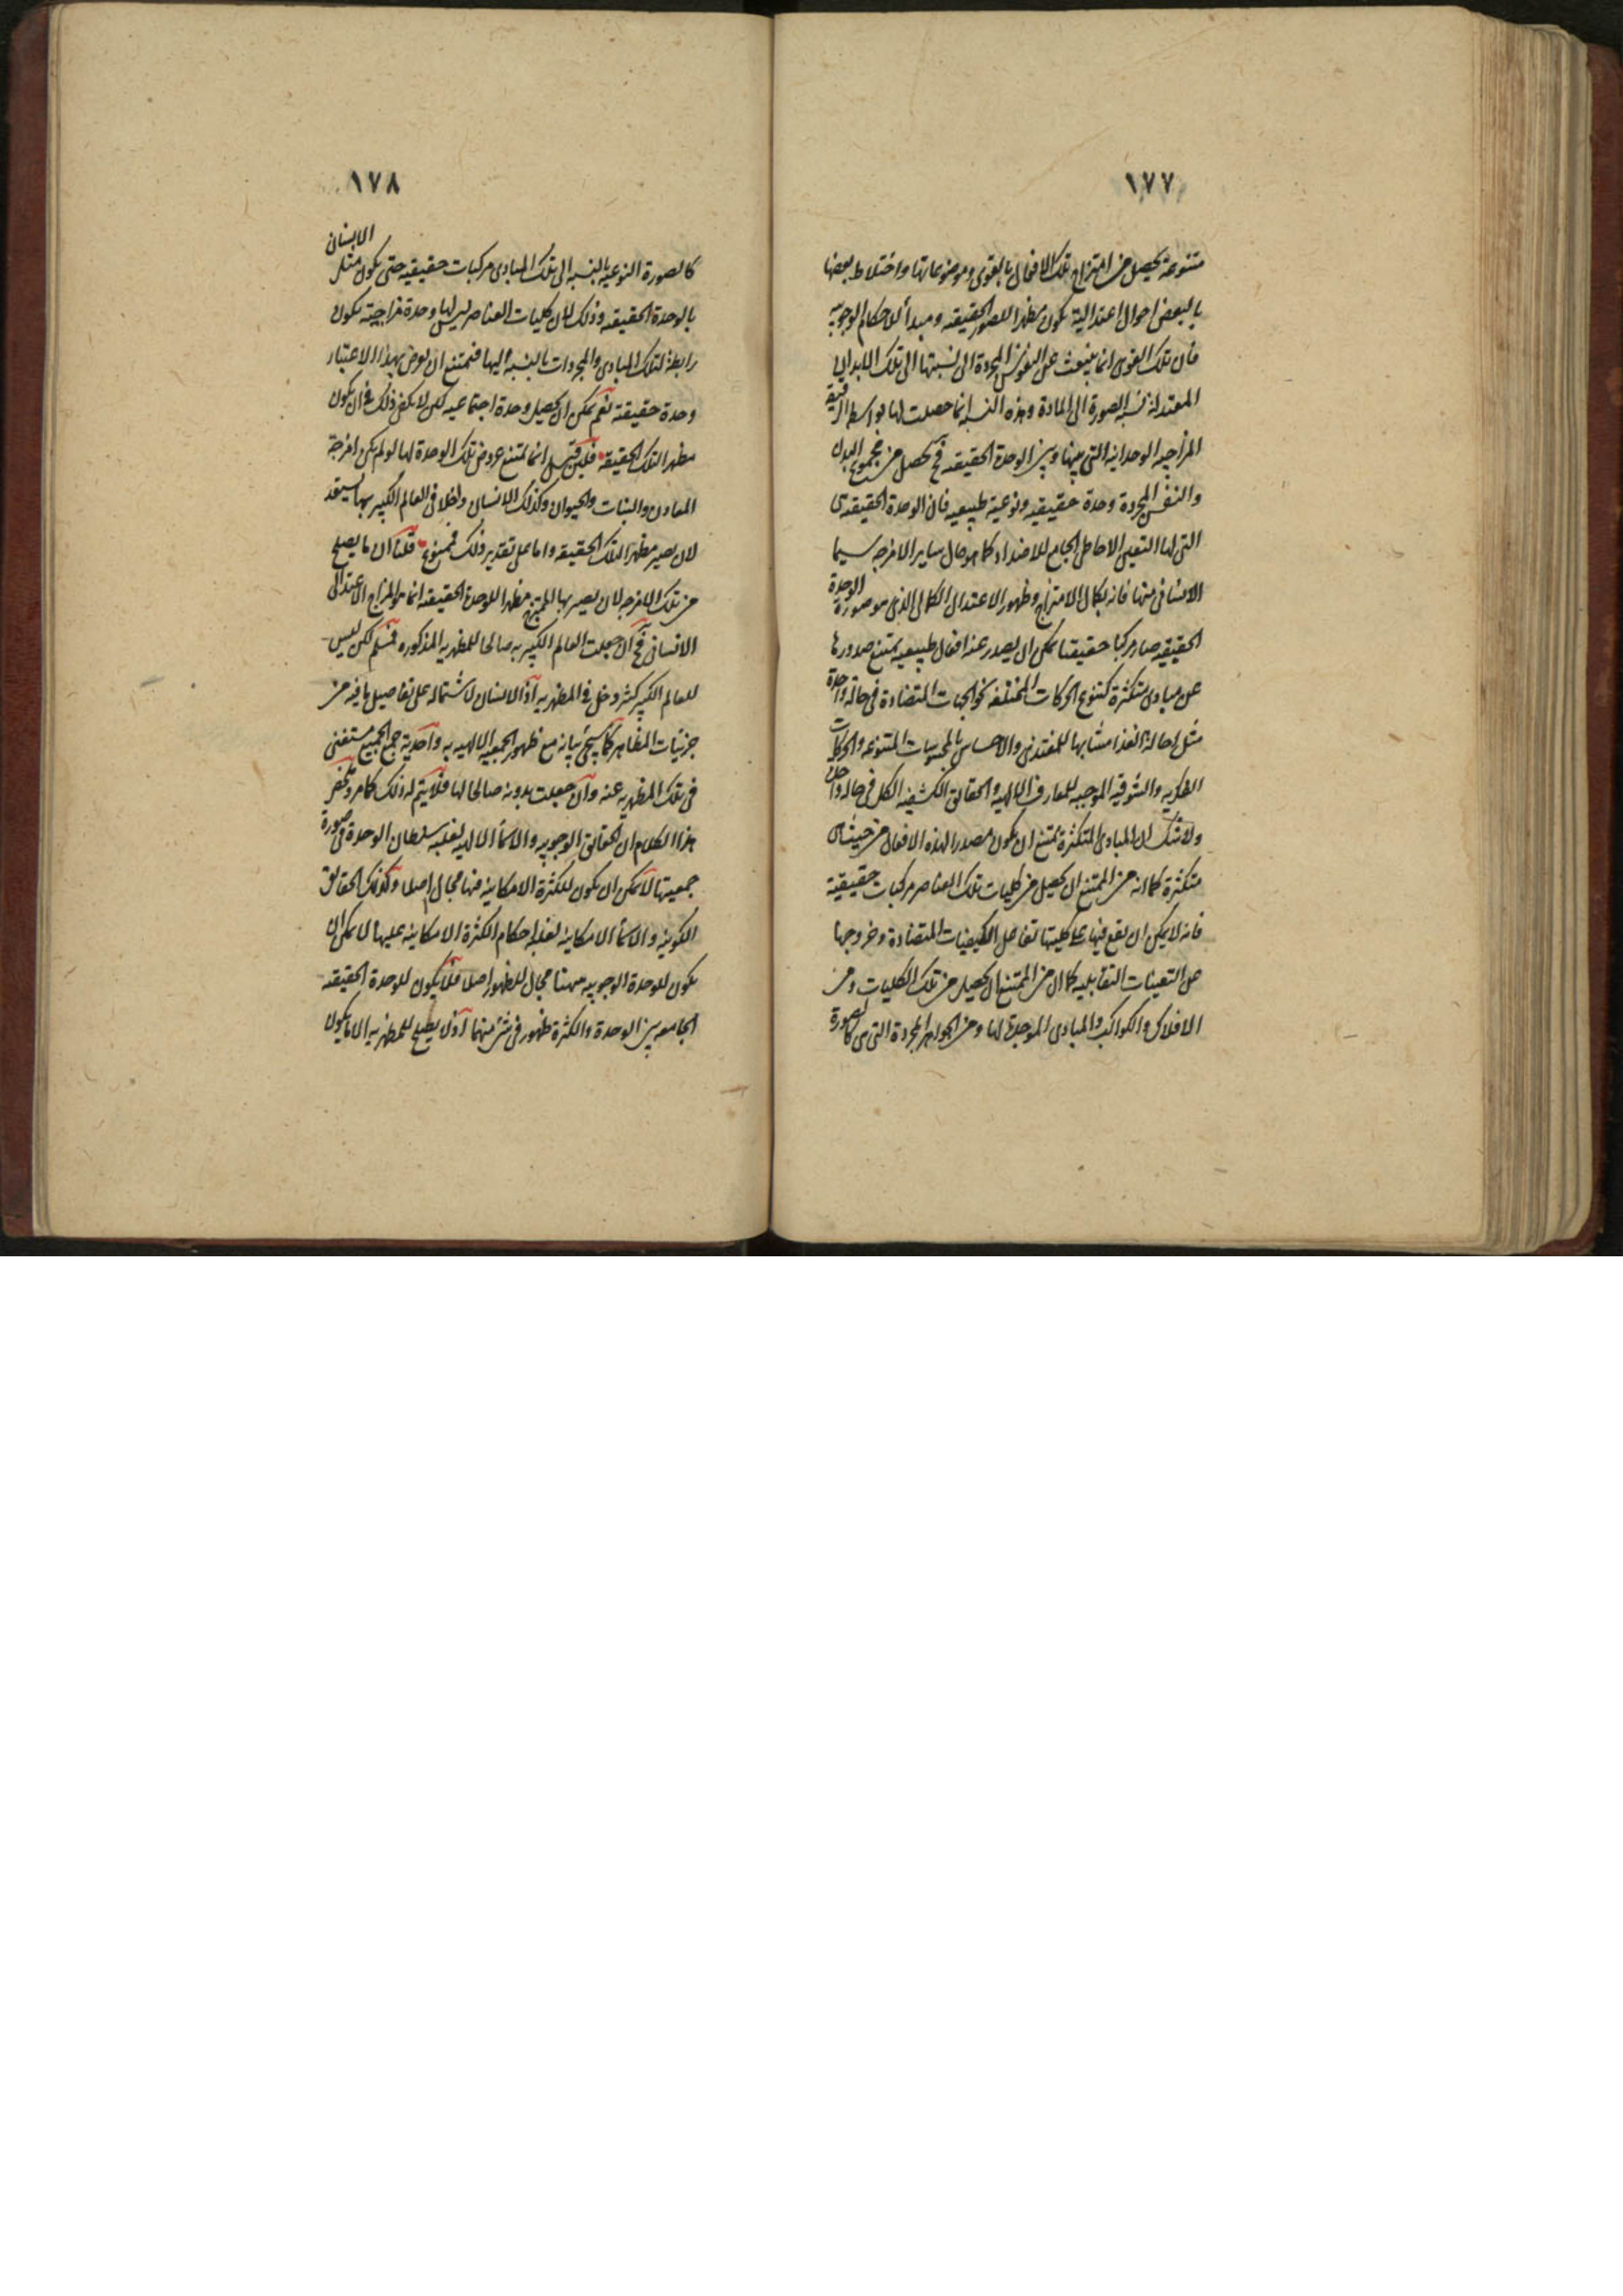 ١٧٧
متنوعة يحصل من امتزاج تلك الافعال بالقوى وموضوعاتها واختلاط بعضها
بالبعض احوال اعتدالية يكون مظهرا للصور الحقيقه ومبدأ للاحكام الوجوبيه
فان تلك القوى انما ينبعث عن النفوس المجردة الى نسبتها الى تلك الابدان
المعتدلة نسبه الصورة الى المادة وهذه النسبه انما حصلت لها بواسطه الرقيقة
المزاجيه الوحدانيه التى بينها وبين الوحدة الحقيقه فح يحصل من مجموع البدن
والنفس المجردة وحدة حقيقيه ونوعية طبيعيه فان الوحدة الحقيقه هى
التى لها التعين الاحاطى الجامع للاضداد كما هو حال ساير الامزجه سيما
الانسانى منها فانه بكمال الامتزاج وظهور الاعتدال الكمالى الذى هو صورة الوحدة
الحقيقه صار مركبا حقيقتا يمكن ان يصدر عنه افعال طبيعيه يمتنع صدورها
عن مبادى متكثرة كتنوع الحركات المختلفه نحو الجهات المتضادة فى حالة واحدة
مثل احالة الغذا مشابها للمغتذى والاحساس بالمحسوسات المتنوعه والحركات
الفكريه والشوقية الموجبه للمعارف الالهيه والحقائق الكشفيه الكل فى حالة واحدة
ولا شك ان المبادى المتكثرة يمتنع ان يكون مصدرا لهذه الافعال من حيث هى
متكثرة كما انه من الممتنع ان يحصل من كليات تلك العناصر مركبات حقيقية
فانه لا يمكن ان يقع فيها على كليتها تفاعل الكيفيات المتضادة وخروجها
عن التعينات التقابليه كما ان من الممتنع ان يحصل من تلك الكليات ومن
الافلاك والكواكب والمبادى الموجدة لها ومن الجواهر المجردة التى هى كالصورة
١٧٨
كالصورة النوعية بالنسبه الى تلك المبادى مركبات حقيقيه حتى يكون مثل الانسان
بالوحدة الحقيقه وذلك لان كليات العناصر ليس لها وحدة مزاجية يكون
رابطة لتلك المبادى والمجردات بالنسبه اليها فيمتنع ان يعرض بهذا الاعتبار
وحدة حقيقة نعم يمكن ان يحصل وحدة اجتماعيه لكن لا يكفى ذلك فى ان يكون
مظهرا لتلك الحقيقه فلئن قيل انما يمتنع عروض تلك الوحدة لها لو لم يكن امزجة
المعادن والنبات والحيوان وكذلك الانسان داخلا فى العالم الكبير بها يستعد
لان يصير مظهرا لتلك الحقيقه واما على تقدير ذلك فممنوع قلنا ان ما يصلح
من تلك الامزجه لان يصير بها الممتزج مظهرا للوحدة الحقيقه انما هو المزاج الاعتدالى
الانسانى فح ان جعلت العالم الكبير به صالحا للمظهريه المذكوره فمسلم لكن ليس
للعالم الكبير كثير دخل فى المظهريه اذ الانسان لاشتماله على تفاصيل ما فيه من
جزئيات المظاهر كما سيجئ بيانه مع ظهور الجمعيه الالهيه به واحدية جمع الجميع مستغنى
فى تلك المظهريه عنه وان جعلت بدونه صالحا لها فلا يتم له ذلك كما مر وملخص
هذا الكلام ان الحقائق الوجوبيه والاسما الالهيه لغلبه سلطان الوحدة فى صورة
جمعيتها لا يمكن ان يكون للكثرة الامكانيه فيها مجال اصلا وكذلك الحقايق
الكونيه والاسما الامكانيه لغلبه احكام الكثرة الامكانيه عليها لا يمكن ان
يكون للوحدة الوجوبيه هيهنا مجال للظهور اصلا فلا يكون للوحدة الحقيقه
الجامعه بين الوحدة والكثرة ظهور فى شئ منهما اذ لا يصلح للمظهريه الا ما يكون